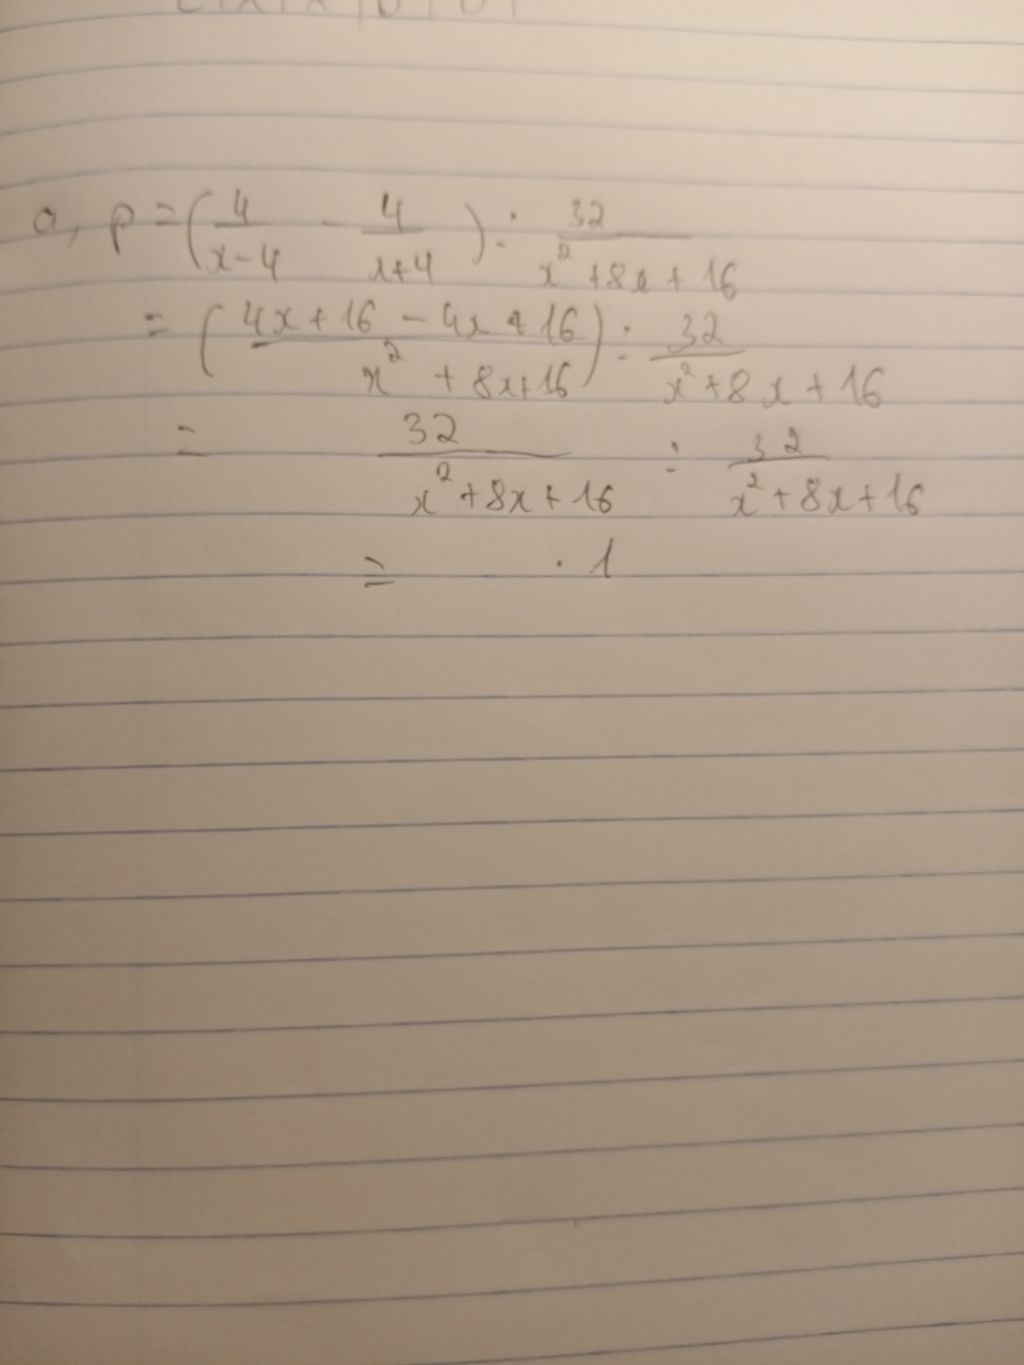 a, P = (4/(x-4) - 4/(x+4)) : 32/(x²+8x+16)
= ((4x+16-4x+16)/(x²+8x+16)) : 32/(x²+8x+16)
= 32/(x²+8x+16) : 32/(x²+8x+16)
= . 1